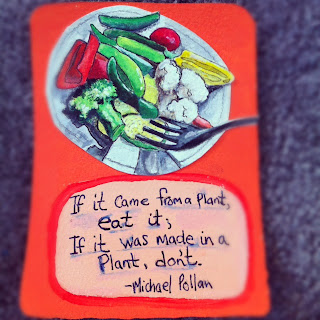 If it came from a plant,
eat it;
If it was made in a
Plant, don't.
-Michael Pollan